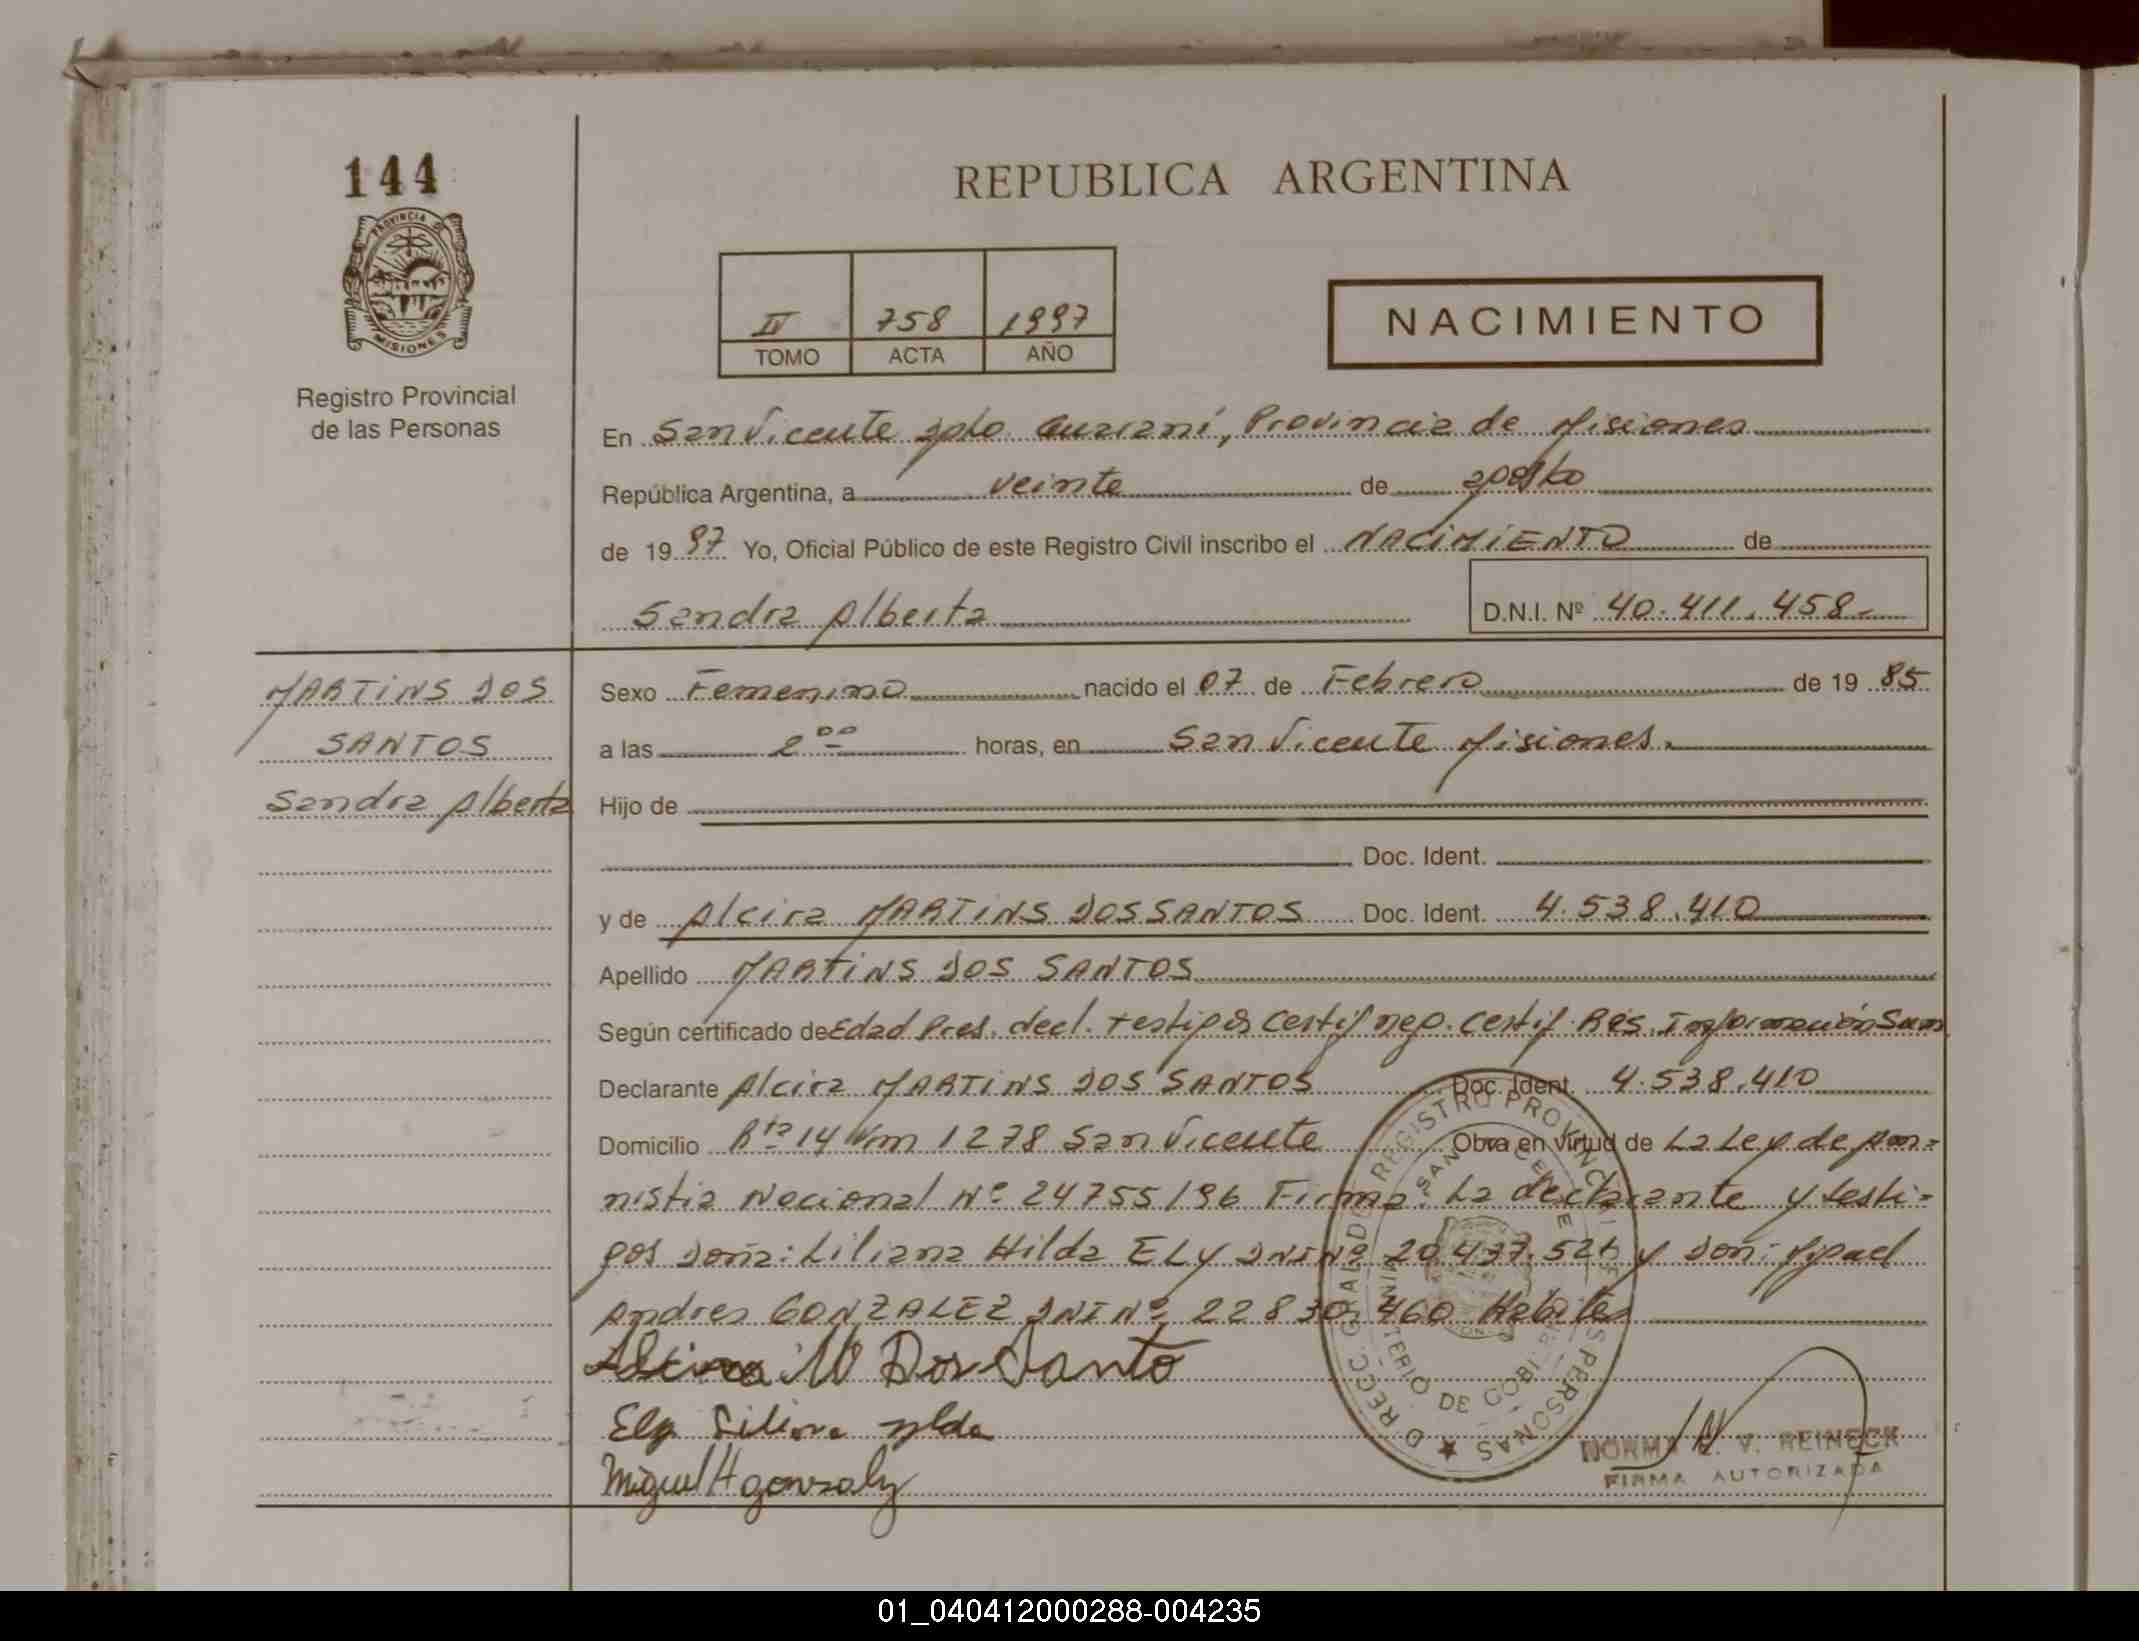 144
REPUBLICA ARGENTINA
PROVINCIA DE
MISIONES
Registro Provincial
de las Personas
IV 758 1997
TOMO ACTA AÑO
NACIMIENTO
En San Vicente Dpto Guaraní, Provincia de Misiones
República Argentina, a veinte de agosto
de 1997 Yo, Oficial Público de este Registro Civil inscribo el NACIMIENTO de
Sandra Alberta D.N.I. Nº 40.411.458
MARTINS DOS
SANTOS
Sandra Alberta
Sexo Femenino nacido el 07 de Febrero de 1985
a las 2 00 horas, en San Vicente Misiones.
Hijo de
Doc. Ident.
y de Alcira MARTINS DOS SANTOS Doc. Ident. 4.538.410
Apellido MARTINS DOS SANTOS
Según certificado de Edad Pres. decl. testigos Certif neg. Certif. Res. Información Sum
Declarante Alcira MARTINS DOS SANTOS Doc. Ident. 4.538.410
Domicilio Rta 14 Km 1278 San Vicente Obra en virtud de La Ley de Am=
nistia Nacional Nº 24755/96 Firma: La declarante y testi=
gos Doña: Liliana Hilda ELY DNI Nº 20.437.526 y Don: Miguel
Andres GONZALEZ DNI Nº 22830.460 Habiles
Alcira M Dos Santo
Ely Liliana Ilda
Miguel A gonzalez
DIRECC. GRAL. DE REGISTRO PROVINCIAL DE LAS PERSONAS
SAN VICENTE
MINISTERIO DE GOBI
NORMA V. REINECK
FIRMA AUTORIZADA
01_040412000288-004235